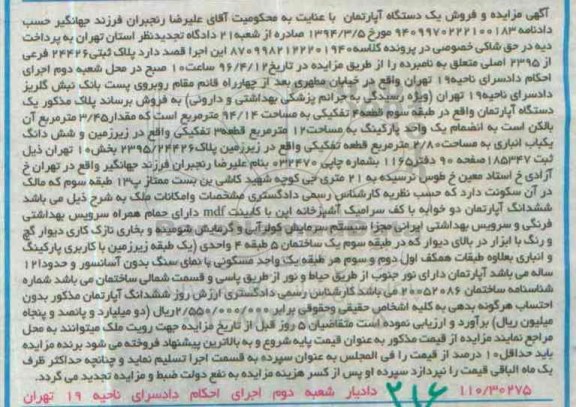 آگهی مزایده و فروش یک دستگاه آپارتمان با عنایت به محکومیت آقای علیرضا رنجبران فرزند جهانگیر حسب
دادنامه ۹۴۰۹۹۷۰۲۲۲۱۰۰۱۸۳ مورخ ۱۳۹۴/۳/۵ صادره از شعبه۲۱ دادگاه تجدیدنظر استان تهران به پرداخت
دیه در حق شاکی خصوصی در پرونده کلاسه۸۷۰۹۹۸۲۱۲۲۲۰۱۹۴۰ این اجرا قصد دارد پلاک ثبتی۲۴۴۲۶ فرعی
از ۲۳۹۵ اصلی متعلق به نامبرده را از طریق مزایده در تاریخ۹۶/۴/۱۲ ساعت۱۰ صبح در محل شعبه دوم اجرای
احکام دادسرای ناحیه۱۹ تهران واقع در خیابان مطهری بعد از چهارراه قائم مقام روبروی پست بانک نبش گلریز
دادسرای ناحیه۱۹ تهران (ویژه رسیدگی به جرائم پزشکی بهداشتی و داروئی) به فروش برساند پلاک مذکور یک
دستگاه آپارتمان واقع در طبقه سوم قطعه۷ تفکیکی به مساحت ۹۴/۱۴ مترمربع است که مقدار۳/۴۵ مترمربع آن
بالکن است به انضمام یک واحد پارکینگ به مساحت۱۲ مترمربع قطعه۳ تفکیکی واقع در زیرزمین و شش دانگ
یکباب انباری به مساحت۲/۸۰ مترمربع تفکیکی واقع در زیرزمین پلاک۲۳۹۵/۲۴۴۲۶ بخش۱۰ تهران ذیل
ثبت ۱۸۵۳۴۷ صفحه ۹۰ دفتر۱۱۶۵ بشماره چاپی ۰۳۲۴۷۰ بنام علیرضا رنجبران فرزند جهانگیر واقع در تهران خ
آزادی خ استاد معین خ طوس نرسیده به ۲۱ متری جی کوچه شهید کاشی بن بست ممتاز پ۱۳ طبقه سوم که مالک
در آن سکونت دارد که حسب نظریه کارشناس رسمی دادگستری مشخصات وامکانات ملک به شرح ذیل می باشد
ششدانگ آپارتمان دو خوابه با کف سرامیک آشپزخانه اپن با کابینت mdf دارای حمام همراه سرویس بهداشتی
فرنگی و سرویس بهداشتی ایرانی مجزا سیستم سرمایش کولرآبی و گرمایش شومینه و بخاری نازک کاری دیوار گچ
و رنگ با ابزار در بالای دیوار که در طبقه سوم یک ساختمان ۵ طبقه ۴ واحدی (یک طبقه زیرزمین با کاربری پارکینگ
و انباری بعلاوه طبقات همکف اول دوم و سوم هر طبقه یک واحد مسکونی با نمای سنگ بدون آسانسور و حدودا۱۲
ساله می باشد آپارتمان دارای نور جنوب از طریق حیاط و نور از طریق پاسی و قسمت شمالی ساختمان می باشد شماره
شناسنامه ساختمان ۲۰۰۵۲۰۸۶ می باشد کارشناس رسمی دادگستری ارزش روز ششدانگ آپارتمان مذکور بدون
احتساب هرگونه بدهی به کلیه اشخاص حقیقی وحقوقی برابر ۲/۵۵۰/۰۰۰/۰۰۰ریال (دو میلیارد و پانصد و پنجاه
میلیون ریال) برآورد و ارزیابی نموده است متقاضیان ۵ روز قبل از تاریخ مزایده جهت رویت ملک میتوانند به محل
مراجع نمایند مزایده از قیمت مذکور به عنوان قیمت پایه شروع و به بالاترین پیشنهاد فروخته می شود برنده مزایده
باید حداقل۱۰ درصد از قیمت را فی المجلس به عنوان سپرده به قسمت اجرا تسلیم نماید و چنانچه حداکثر ظرف
یک ماه الباقی قیمت را نپردازد سپرده او پس از کسر هزینه مزایده به نفع دولت ضبط و مزایده تجدید می گردد.
۱۱۰/۳۰۲۷۵ ۲۱۶ دادیار شعبه دوم اجرای احکام دادسرای ناحیه ۱۹ تهران